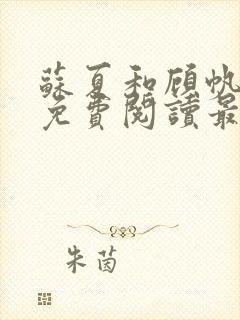 蘇夏和顧帆
免費閱讀最
朱茵